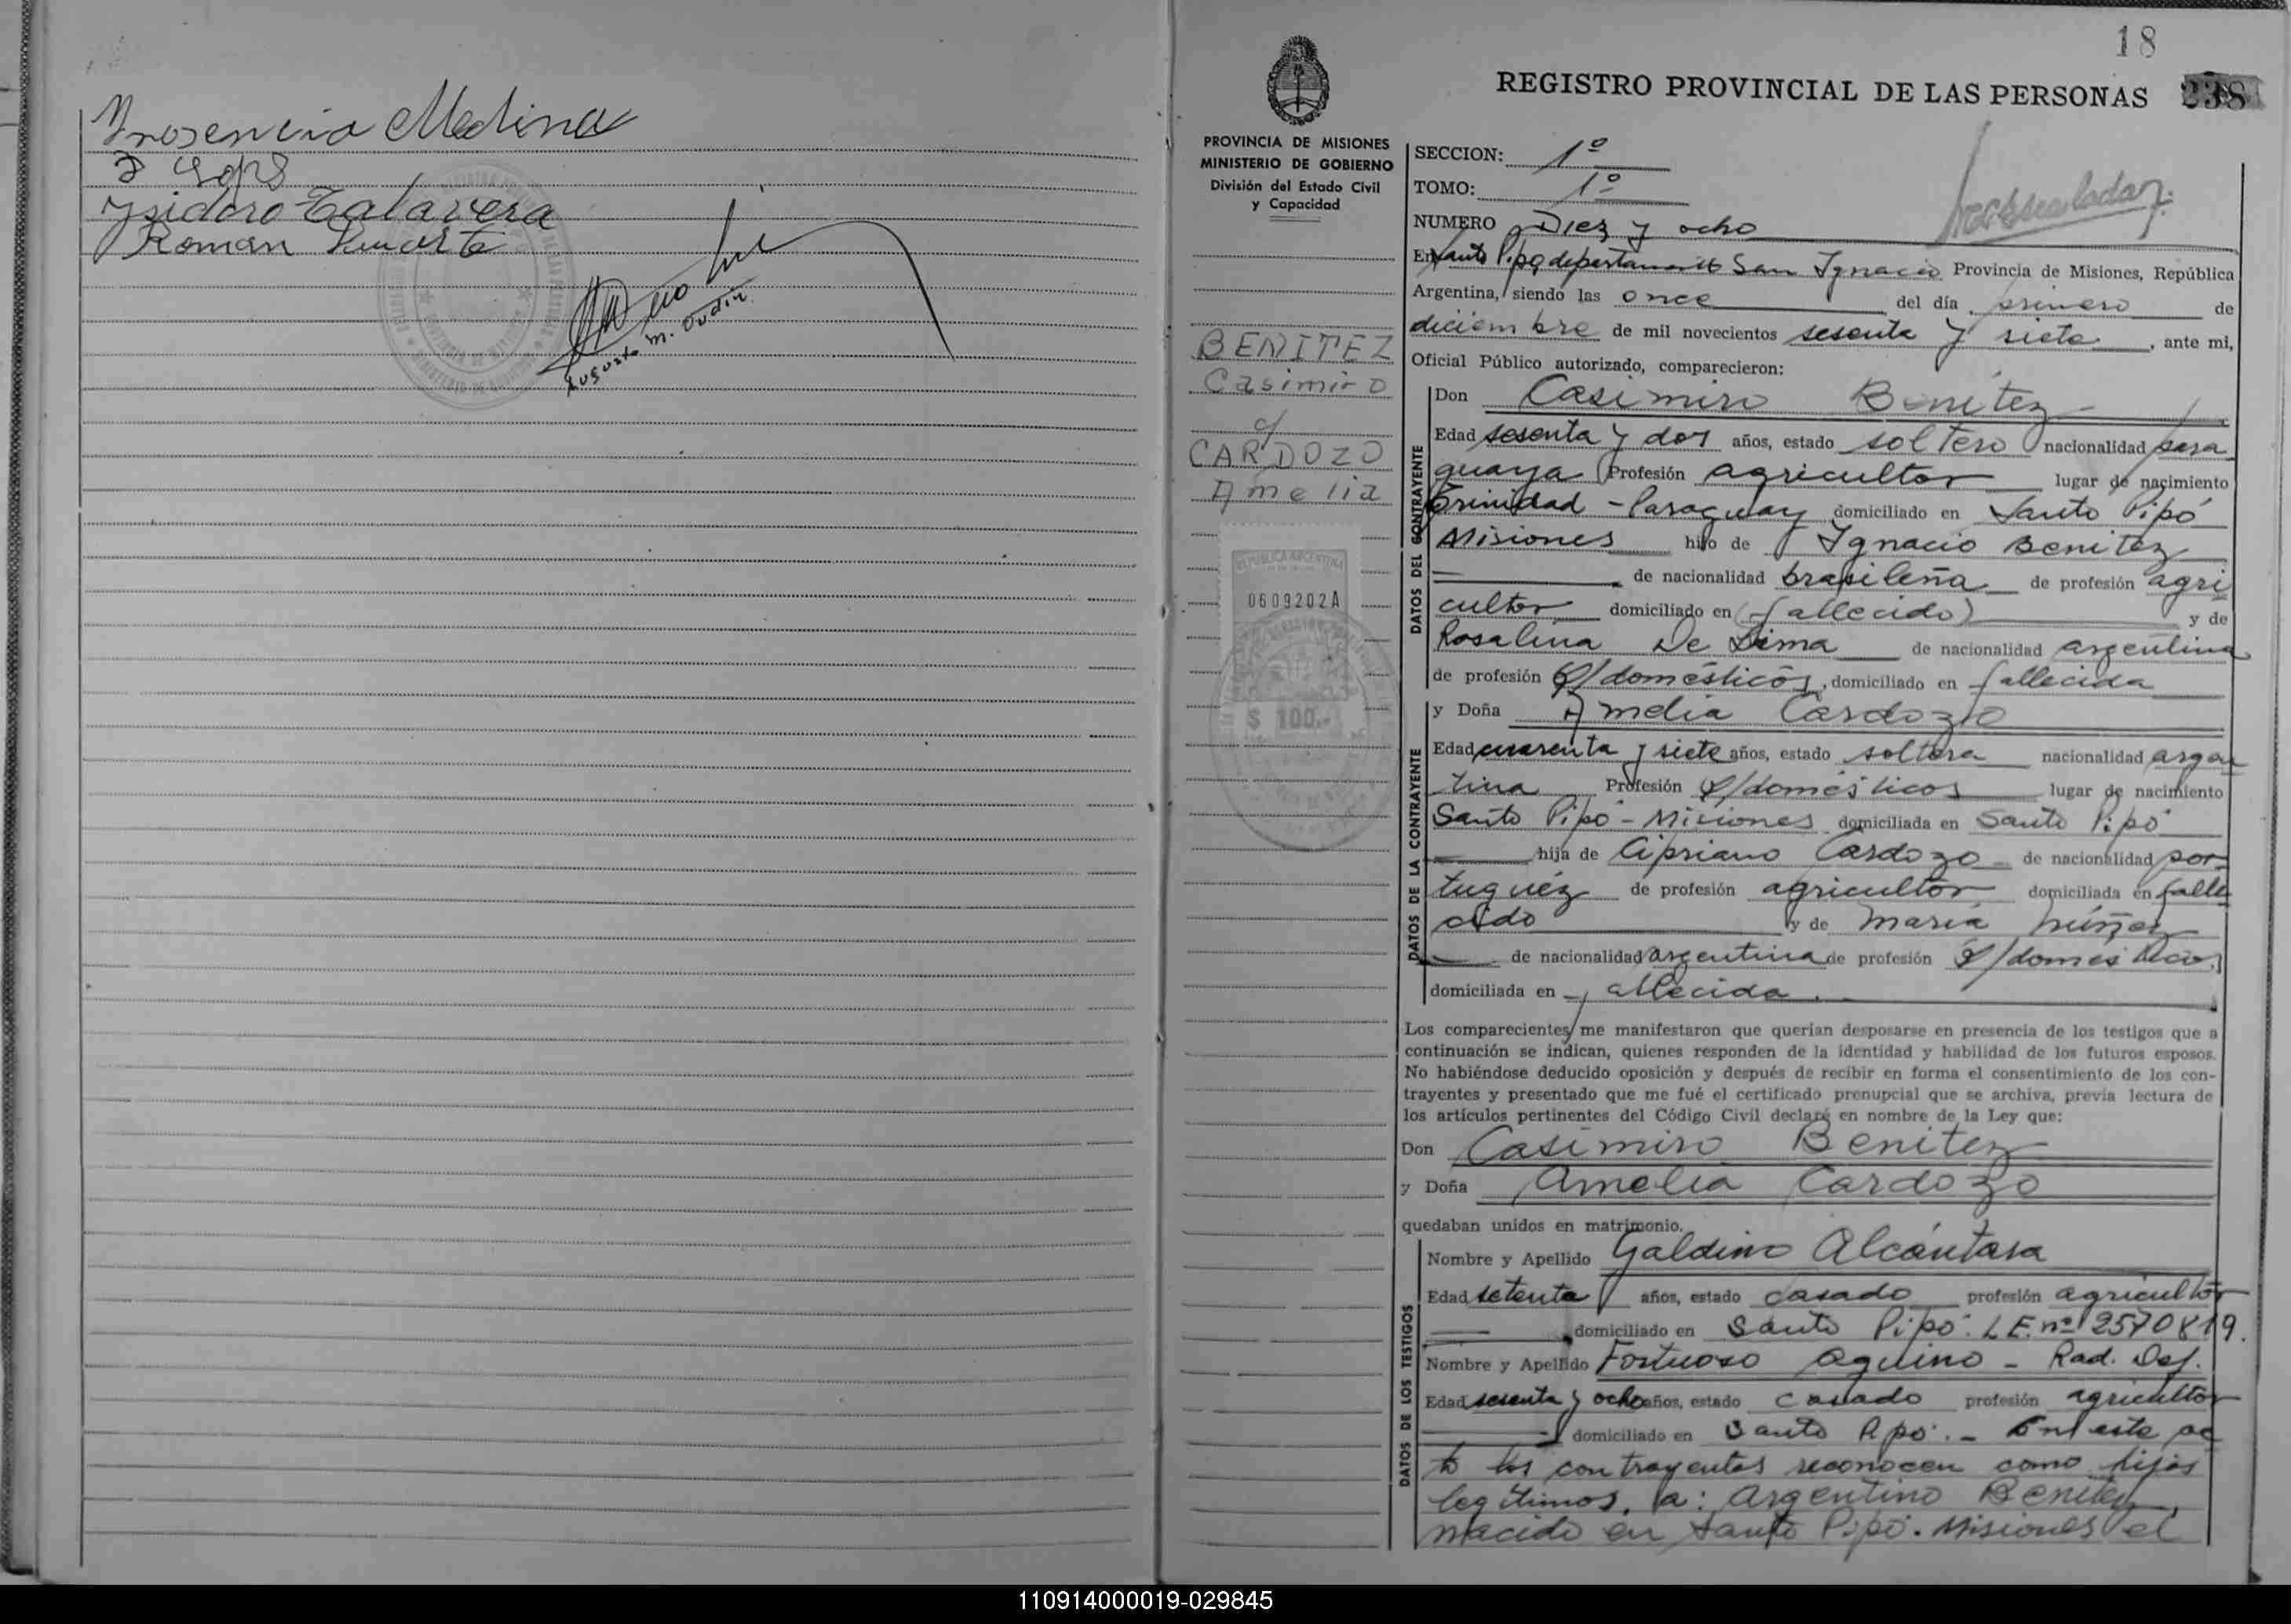 Inosencia Medina
Ysidoro Talavera
Roman Duarte
Augusto M. Oudin
18
REGISTRO PROVINCIAL DE LAS PERSONAS
238
PROVINCIA DE MISIONES
MINISTERIO DE GOBIERNO
División del Estado Civil
y Capacidad
BENITEZ
Casimiro
c/
CARDOZO
Amelia
REPUBLICA ARGENTINA
0609202A
$ 100.-
SECCION: 1º
TOMO: 1º
NUMERO Diez y ocho
En Santo Pipó, departamento San Ignacio Provincia de Misiones, República
Argentina, siendo las once del día primero de
diciembre de mil novecientos sesenta y siete, ante mi,
Oficial Público autorizado, comparecieron:
DATOS DEL CONTRAYENTE
Don Casimiro Benitez
Edad sesenta y dos años, estado soltero nacionalidad para
guaya Profesión agricultor lugar de nacimiento
Trinidad - Paraguay domiciliado en Santo Pipó
Misiones hijo de Ignacio Benitez
de nacionalidad brasileña de profesión agri
cultor domiciliado en (fallecido) y de
Rosalina De Lima de nacionalidad argentina
de profesión q/domésticos, domiciliado en fallecida
DATOS DE LA CONTRAYENTE
y Doña Amelia Cardozo
Edad cuarenta y siete años, estado soltera nacionalidad argen
tina Profesión q/domésticos lugar de nacimiento
Santo Pipó - Misiones domiciliada en Santo Pipó
hija de Cipriano Cardozo de nacionalidad por-
tuguéz de profesión agricultor domiciliada en falle
cido y de María Núñez
de nacionalidad argentina de profesión q/domésticos
domiciliada en fallecida.
Los comparecientes me manifestaron que querían desposarse en presencia de los testigos que a
continuación se indican, quienes responden de la identidad y habilidad de los futuros esposos.
No habiéndose deducido oposición y después de recibir en forma el consentimiento de los con-
trayentes y presentado que me fué el certificado prenupcial que se archiva, previa lectura de
los artículos pertinentes del Código Civil declaré en nombre de la Ley que:
Don Casimiro Benitez
y Doña Amelia Cardozo
quedaban unidos en matrimonio.
DATOS DE LOS TESTIGOS
Nombre y Apellido Galdino Alcántara
Edad setenta años, estado casado profesión agricultor
domiciliado en Santo Pipó. L.E. nº 2570819.
Nombre y Apellido Fortuoso Aquino - Rad. Def.
Edad sesenta y ocho años, estado casado profesión agricultor
domiciliado en Santo Pipó.- En este ac
to los contrayentes reconocen como hijos
legítimos, a: Argentino Benitez,
nacido en Santo Pipó. Misiones el
110914000019-029845